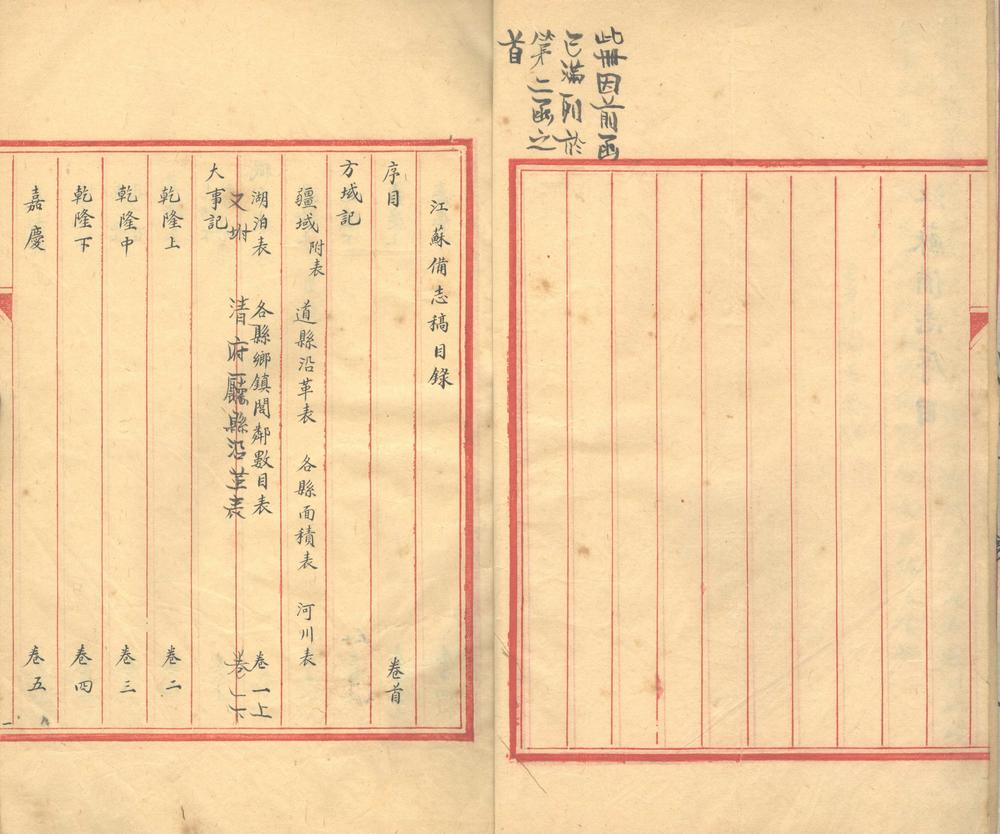 此冊因前函
已滿列於
第二函之
首
江蘇備志稿目錄
序目 卷首
方域記
疆域附表 道縣沿革表 各縣面積表 河川表
湖泊表 各縣鄉鎮閭鄰數目表 卷一上
又坿 清府廳縣沿革表 卷一下
大事記
乾隆上 卷二
乾隆中 卷三
乾隆下 卷四
嘉慶 卷五